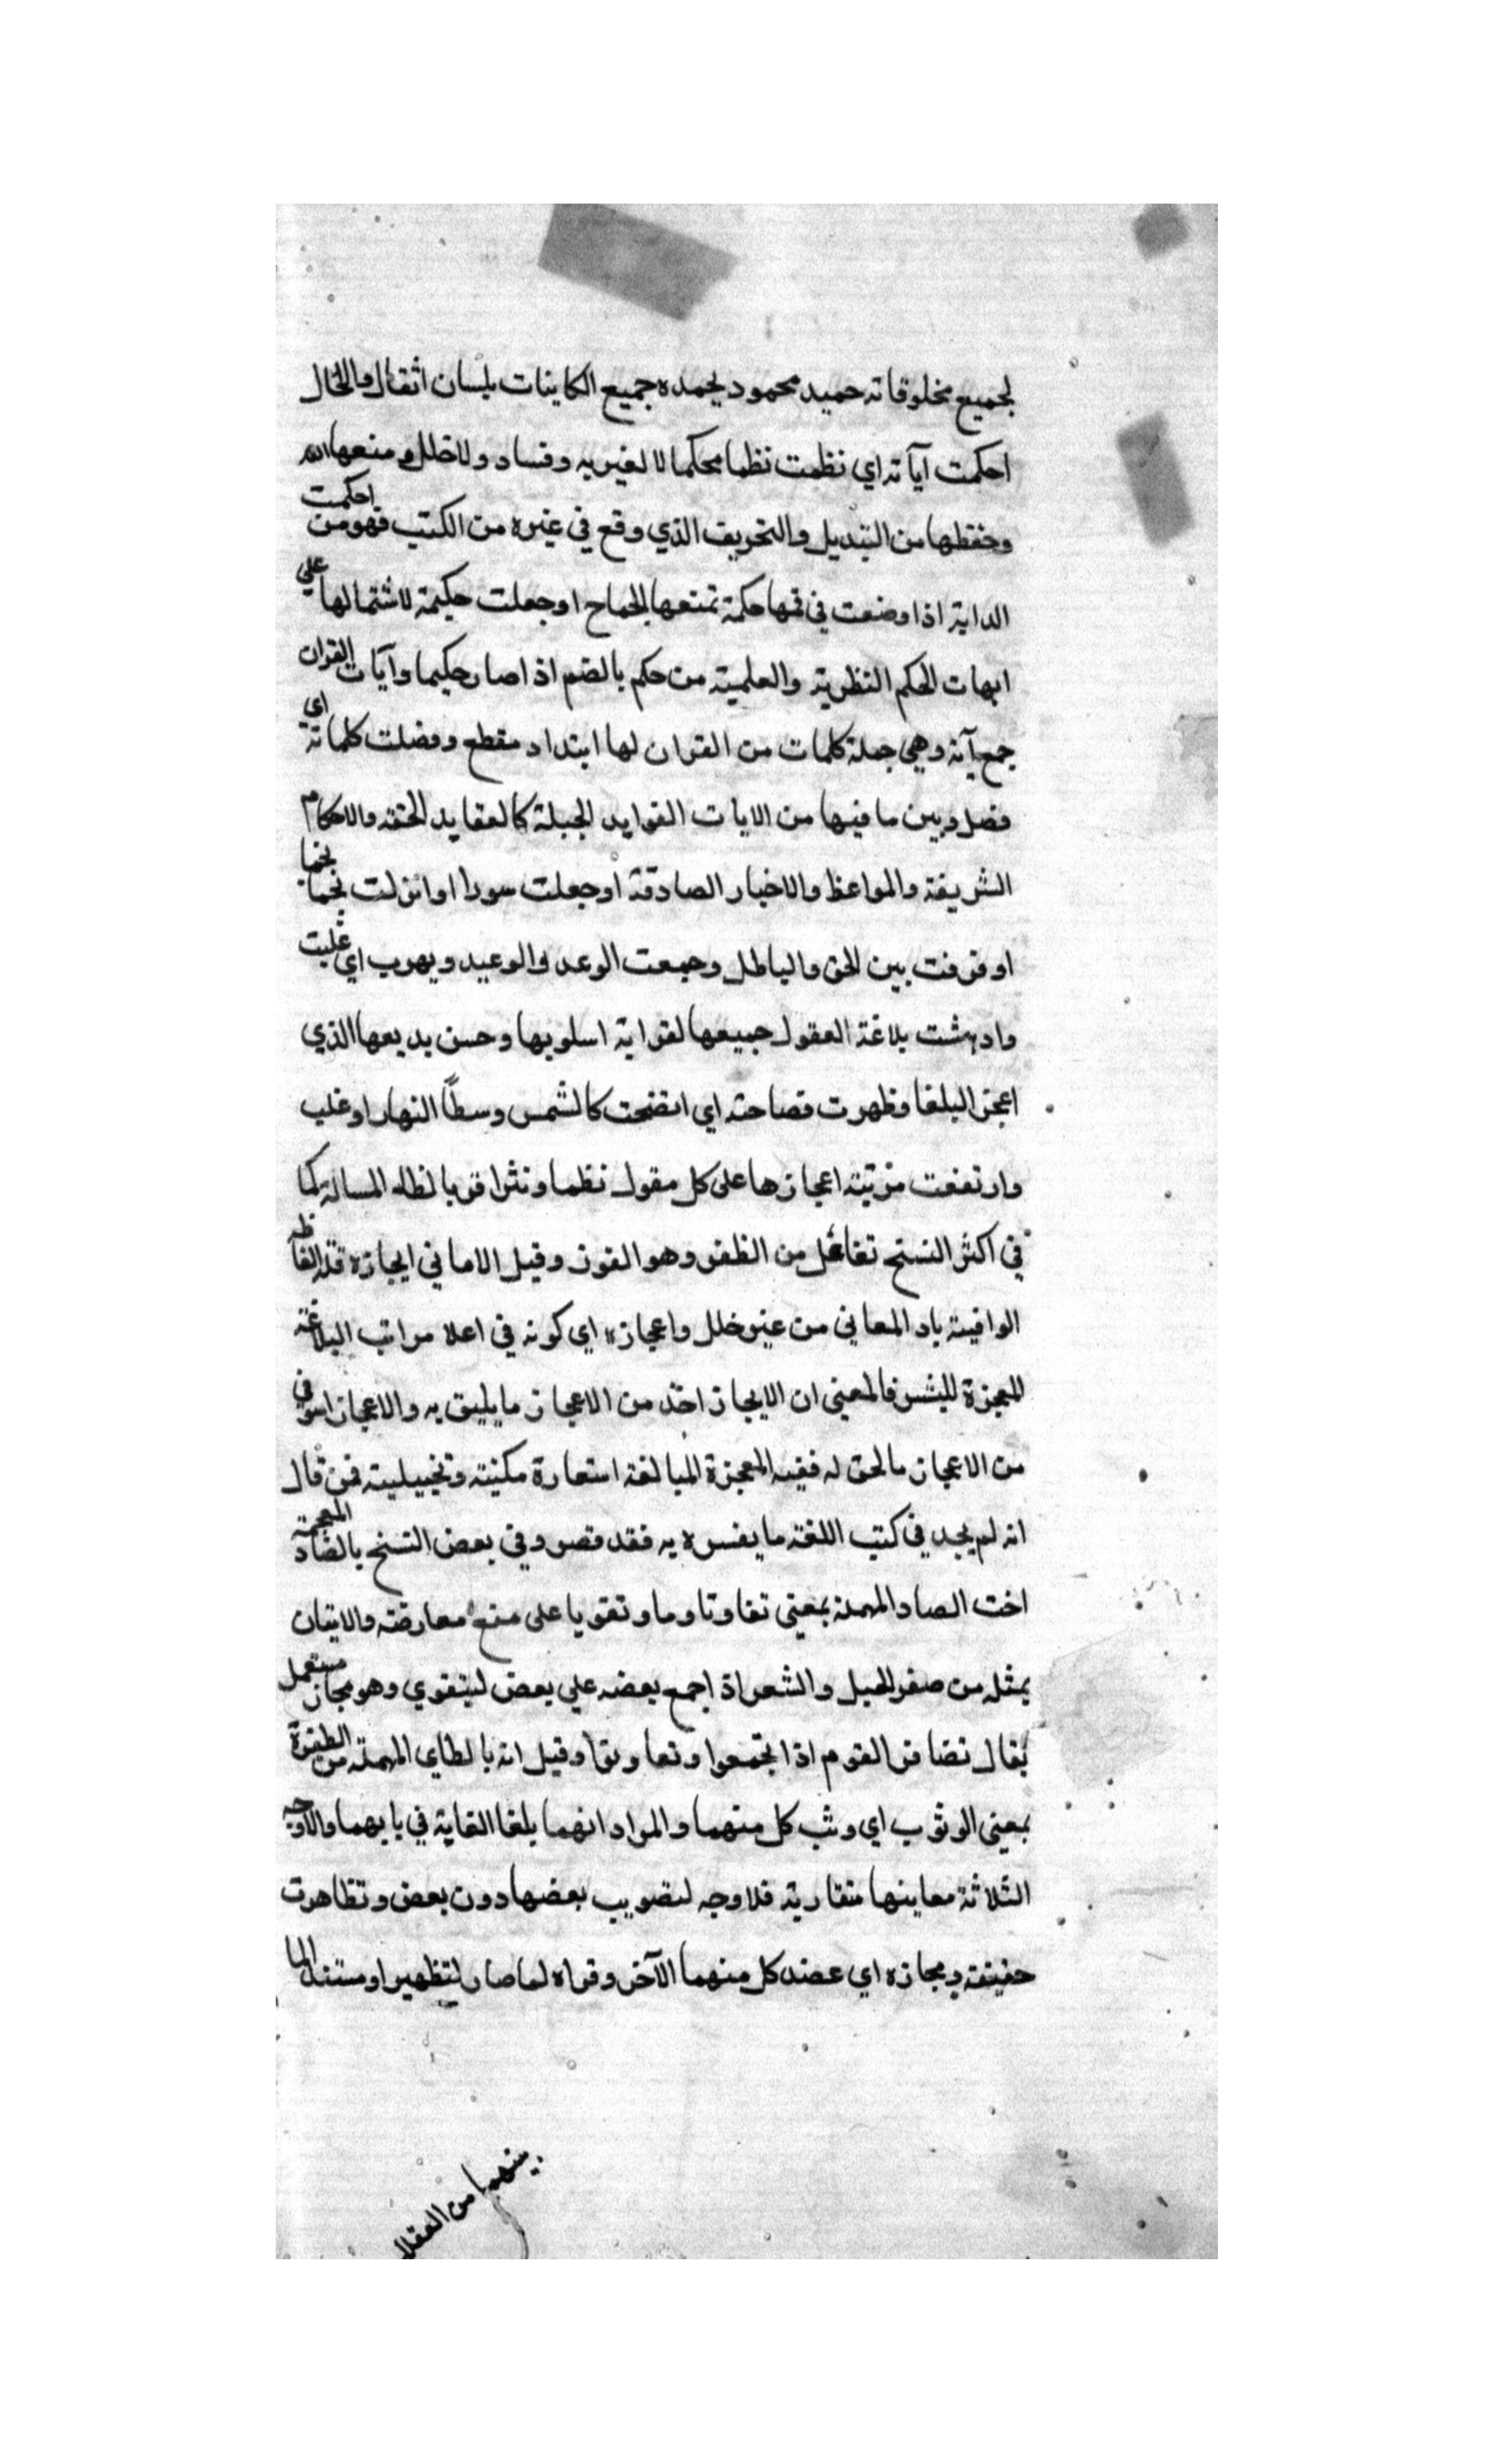 لجميع مخلوقاته حميد محمود يحمده جميع الكاينات بلسان اثقال والحال
احكمت آياته اي نظمت نظما محكما لا لغير به وفساد ولا خلل و منعها الله
وحفظها من التبديل والتحريف الذي وقع في غيره من الكتب فهو من احكمت
الداية اذا وضعت في فمها حكمة تمنعها الجماح او جعلت حكيمة لاشتمالها علي
ابهات الحكم النظرية والعلمية من حكم بالضم اذ اصار حكيما وآيات القران
جمع آية وهي جملة كلمات من القران لها ابتدا د مقطع وفضلت كلماته اي
فضل وبين ما فيها من الايات الفوايد الجبلة كالعقايد الحقه والاحكام
الشريفة والمواعظ والاخبار الصادقة او جعلت سورا او انزلت نجما نجما
او فرقت بين الحق والباطل وجمعت الوعد والوعيد ويهرب اي غلبت
وادهشت بلاغة العقول جميعها لغرابة اسلوبها وحسن بديعها الذي
اعجز البلغا وظهرت فصاحته اي اتضحت كالشمس وسطا النهار او غلب
وارتفعت مزتية اعجازها على كل مقول نظما ونثرا قربا لظاء المسالة كما
في اكثر النسخ تفاعل من الظفر وهو الفوز وقيل الاماني ايجازه قلة الفاظه
الوافية باد المعاني من غير خلل واعجازه اي كونه في اعلا مراتب البلاغة
المعجزة للبشر فالمعنى ان الايجاز اخذ من الاعجاز ما يليق به والاعجاز استوفي
من الاعجاز مالحق له ففيه المعجزة المبالغة استعارة مكنية وتخييلية فمن قال
انه لم يجد في كتب اللغة ما يفسره به فقد قصر وفي بعض النسخ بالضاد المعجمة
اخت الصاد المهملة بمعنى تفاوتا وما وتقويا على منع معارضته والاتيان
بمثله من صفر الحبل والشعر اذ اجمع بعضه علي بعض ليتقوي وهو مجاز مستعمل
يقال تضافر القوم اذا اجتمعوا وتعاونوا وقيل انه بالطاي المهملة من الطفرة
بمعنى الوثوب اي وثب كل منهما والمراد انهما بلغا الغاية في بابهما والاوجه
الثلاثة معاينها متقاربة فلا وجه لتصويب بعضها دون بعض وتظاهرت
حقيقته ومجازه اي عضد كل منهما الآخر وقواه لما صار لتظهير او مستند لما
بينهما من العقلا